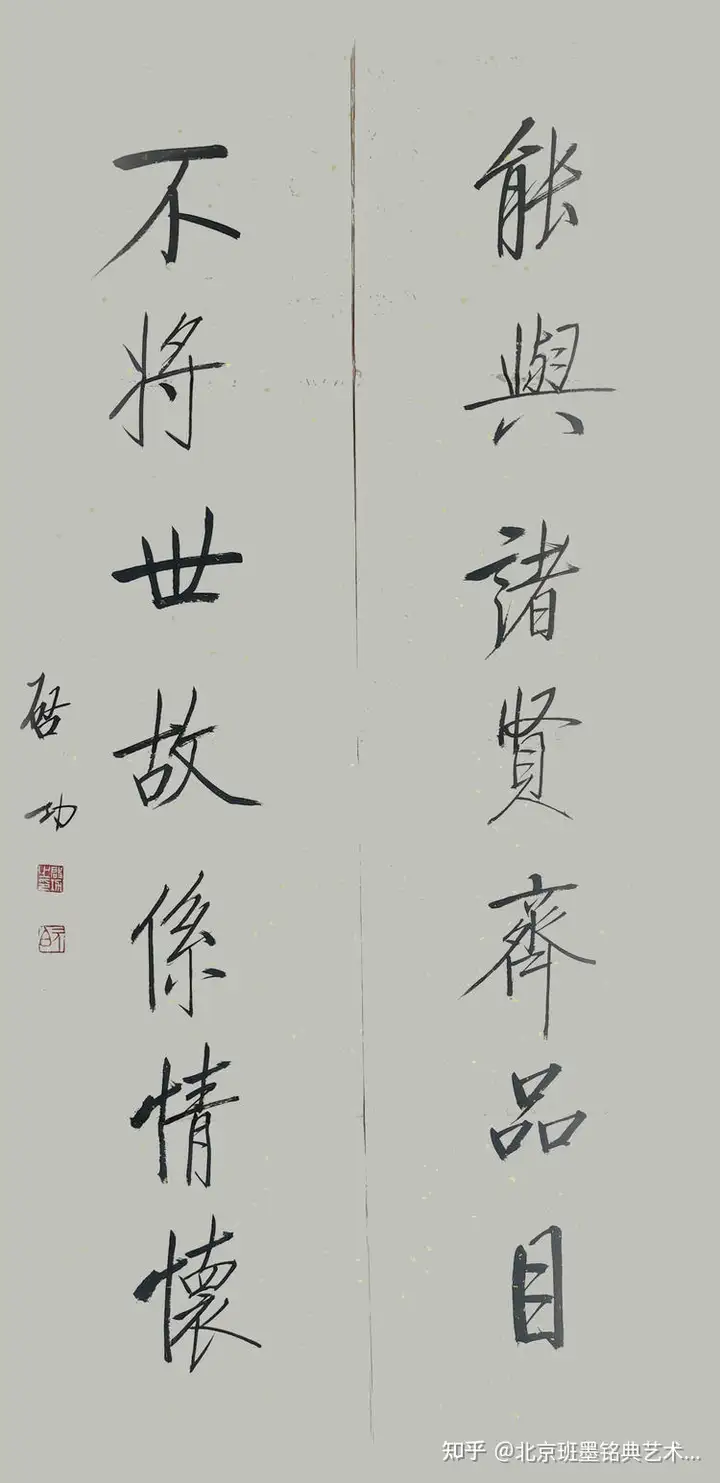 能與諸賢齊品目
不將世故係情懷
启功
知乎 @北京班墨铭典艺术...